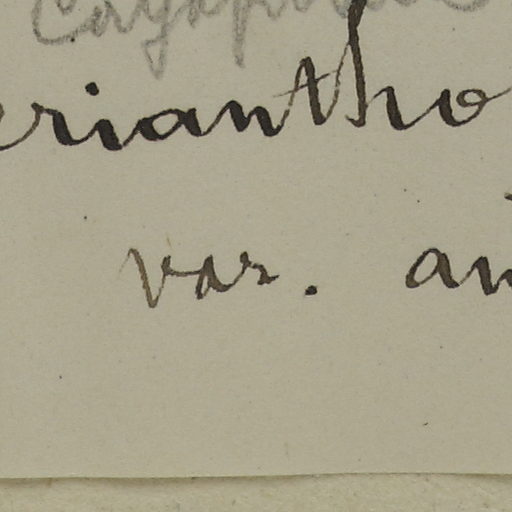 eriantho
var. an